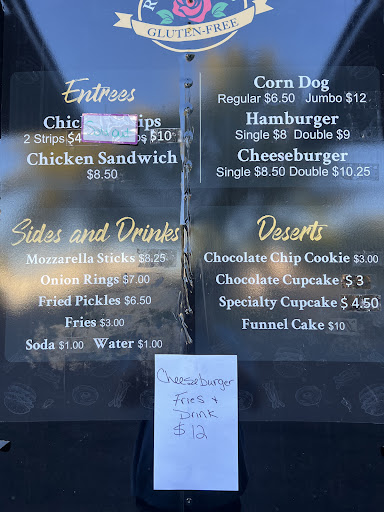 GLUTEN-FREE
Entrees
2 Strips $4 $10
Chicken Sandwich
$8.50
Corn Dog
Regular $6.50 Jumbo $12
Hamburger
Single $8 Double $9
Cheeseburger
Single $8.50 Double $10.25
Sides and Drinks
Mozzarella Sticks $8.25
Onion Rings $7.00
Fried Pickles $6.50
Fries $3.00
Soda $1.00 Water $1.00
Deserts
Chocolate Chip Cookie $3.00
Chocolate Cupcake $3
Specialty Cupcake $4.50
Funnel Cake $10
Cheeseburger
Fries +
Drink
$12